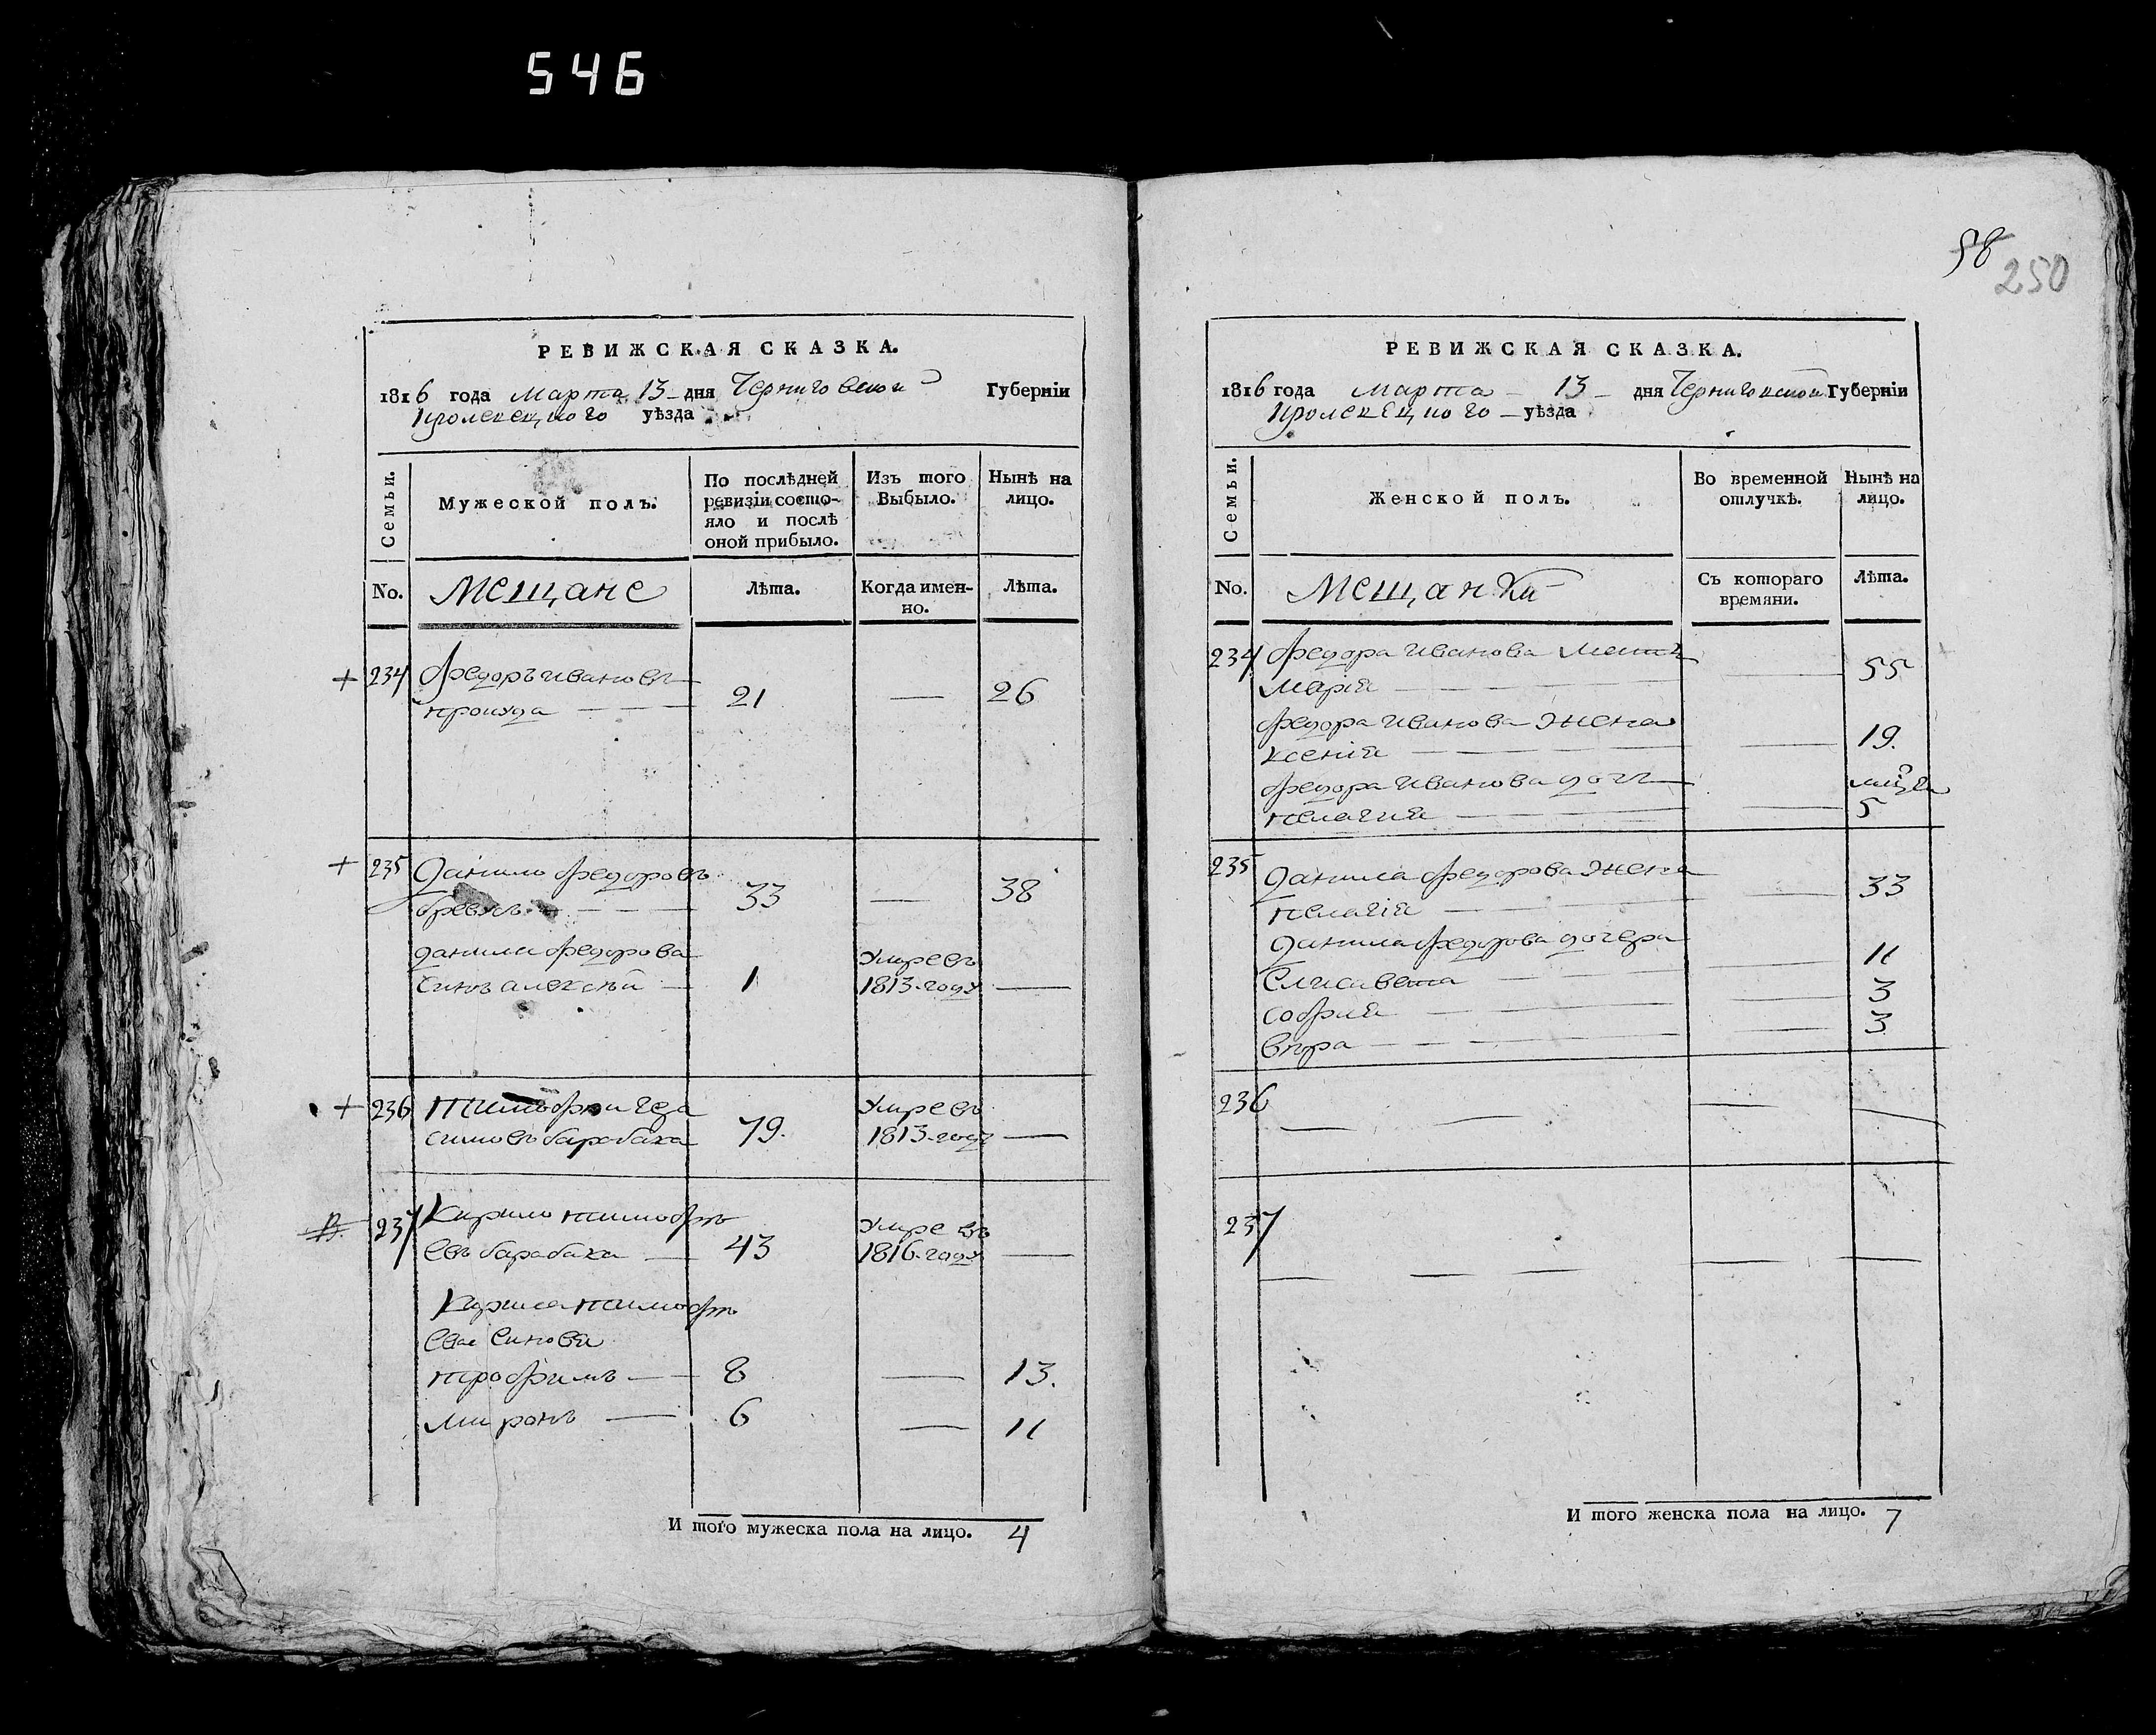 546
РЕВИЖСКАЯ СКАЗКА.
1816 года Марта 13 дня Черниговской Губерніи
Кролевецкого уѣзда
Семьи.
Мужеской полъ.
По послѣдней ревизіи состояло и послѣ оной прибыло.
Изъ того Выбыло.
Нынѣ на лицо.
No.
Мещане
Лѣта.
Когда именно.
Лѣта.
+ 234 Федоръ Ивановъ
21 — 26
+ 235 Данило Федоровъ
33 — 38
Данила Федорова Умре въ
Синъ Алексѣй — 1 1813-году —
+ 236 Тимофѣй Гера Умре въ
симовъ барабаха 79. 1813-году —
237 Кирило Тимофѣ Умре въ
евъ барабаха — 43 1816-году —
Кирила Тимофѣ
ева Синовя
Трофимъ — 8 — 13.
Миронъ — 6 — 11
И того мужеска пола на лицо. 4
58
250
РЕВИЖСКАЯ СКАЗКА.
1816 года Марта 13 дня Черниговской Губерніи
Кролевецкого уѣзда
Семьи.
Женской полъ.
Во временной отлучкѣ.
Нынѣ на лицо.
No.
Мещанки
Съ котораго времяни.
Лѣта.
234 Федора Иванова Мать
Марія — — 55
Федора Иванова Жена
Ксенія — — 19.
Федора Иванова дочь
Пелагия — — 5
235 Данила Федорова Жена
Пелагія — — 33
Данила Федорова дочера
Елисавета — — 11
София — — 3
Вѣра — — 3
236 — — — —
237
— — — — —
И того женска пола на лицо. 7